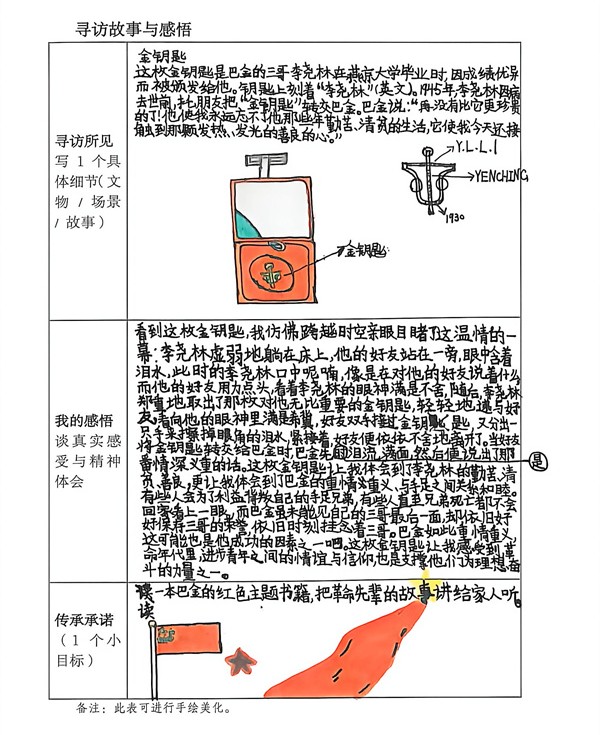 寻访故事与感悟
寻访所见
写 1 个具
体细节（文
物 / 场景
/ 故事）
金钥匙
这枚金钥匙是巴金的三哥李尧林在燕京大学毕业时，因成绩优异
而被颁发给他。钥匙上刻着“李尧林”（英文）。1945年，李尧林因病
去世前，托朋友把“金钥匙”转交巴金。巴金说：“再没有比它更珍贵
的了！他使我永远忘不了他那些年勤苦、清贫的生活，它使我今天还接
触到那颗发热、发光的善良的心。”
Y.L.L.I
YENCHING
1930
金钥匙
我的感悟
谈真实感
受与精神
体会
看到这枚金钥匙，我仿佛跨越时空亲眼目睹了这温情的一
幕：李尧林虚弱地躺在床上，他的好友站在一旁，眼中含着
泪水，此时的李尧林口中呢喃，像是在对他的好友说着什么
而他的好友用力点头，看着李尧林的眼神满是不舍，随后，李尧林
郑重地取出了那枚对他无比重要的金钥匙，轻轻地递与好
友，看向他的眼神里满是希冀，好友双手接过金钥匙，又分出一
只手来擦掉眼角的泪水，紧接着，好友便依依不舍地离开。当好友
将金钥匙转交给巴金时，巴金先的泪流满面，然后便说出了那
是
番情深义重的话。这枚金钥匙让我体会到了李尧林的勤苦、清
贫、善良，更让我体会到了巴金的重情义重义，与手足之间关系和睦。
有些人会为了利益得叛自己的手足兄弟，有些人直至兄弟死亡都不会
回家看上一眼，而巴金虽未能见自己的三哥最后一面，却依旧好
好保存三哥的荣誉，依旧时刻挂念着三哥。巴金如此重情重义，
这可能也是他成功的因素之一吧。这枚金钥匙让我感受到革
命年代里，进步青年之间的情谊与信仰，也是支撑他们为理想奋
斗的力量之一。
传承承诺
（1 个小
目标）
一本巴金的红色主题书籍，把革命先辈的故事讲给家人听。
读
备注：此表可进行手绘美化。